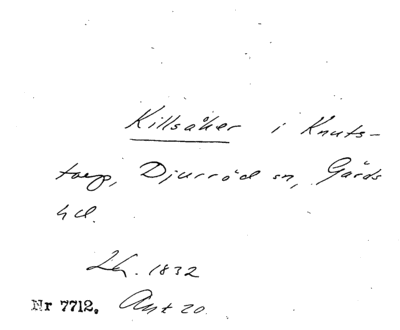 Killsåker i Knuts-
torp, Djurröd sn, Gärds
hd.
Lh. 1832
Nr 7712. Akt 20